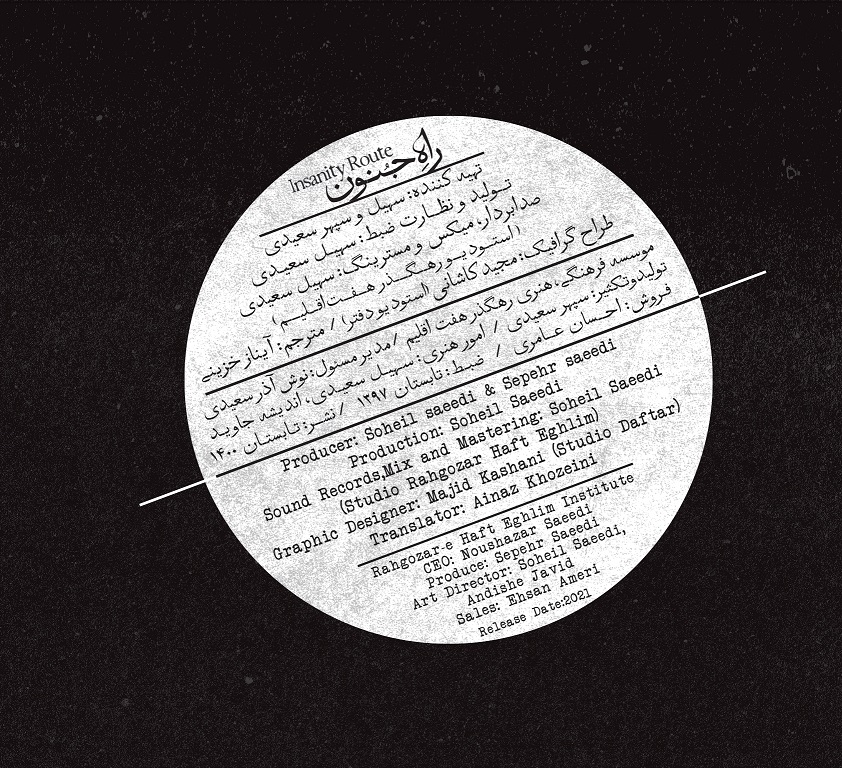 راه جنون
Insanity Route
تهیه کننده: سهیل و سپهر سعیدی
تولید و نظارت ضبط: سهیل سعیدی
صدابردار، میکس و مسترینگ: سهیل سعیدی
(استودیو رهگذر هفت اقلیم)
طراح گرافیک: مجید کاشانی (استودیو دفتر) / مترجم: آیناز خزینی
موسسه فرهنگی، هنری رهگذر هفت اقلیم / مدیر مسئول: نوش آذر سعیدی
تولید و تکثیر: سپهر سعیدی / امور هنری: سهیل سعیدی، اندیشه جاوید
فروش: احسان عامری / ضبط: تابستان ۱۳۹۷ / نشر: تابستان ۱۴۰۰
Producer: Soheil saeedi & Sepehr saeedi
Production: Soheil Saeedi
Sound Records,Mix and Mastering: Soheil Saeedi
(Studio Rahgozar Haft Eghlim)
Graphic Designer: Majid Kashani (Studio Daftar)
Translator: Ainaz Khozeini
Rahgozar-e Haft Eghlim Institute
CEO: Noushazar Saeedi
Produce: Sepehr Saeedi
Art Director: Soheil Saeedi,
Andishe Javid
Sales: Ehsan Ameri
Release Date:2021